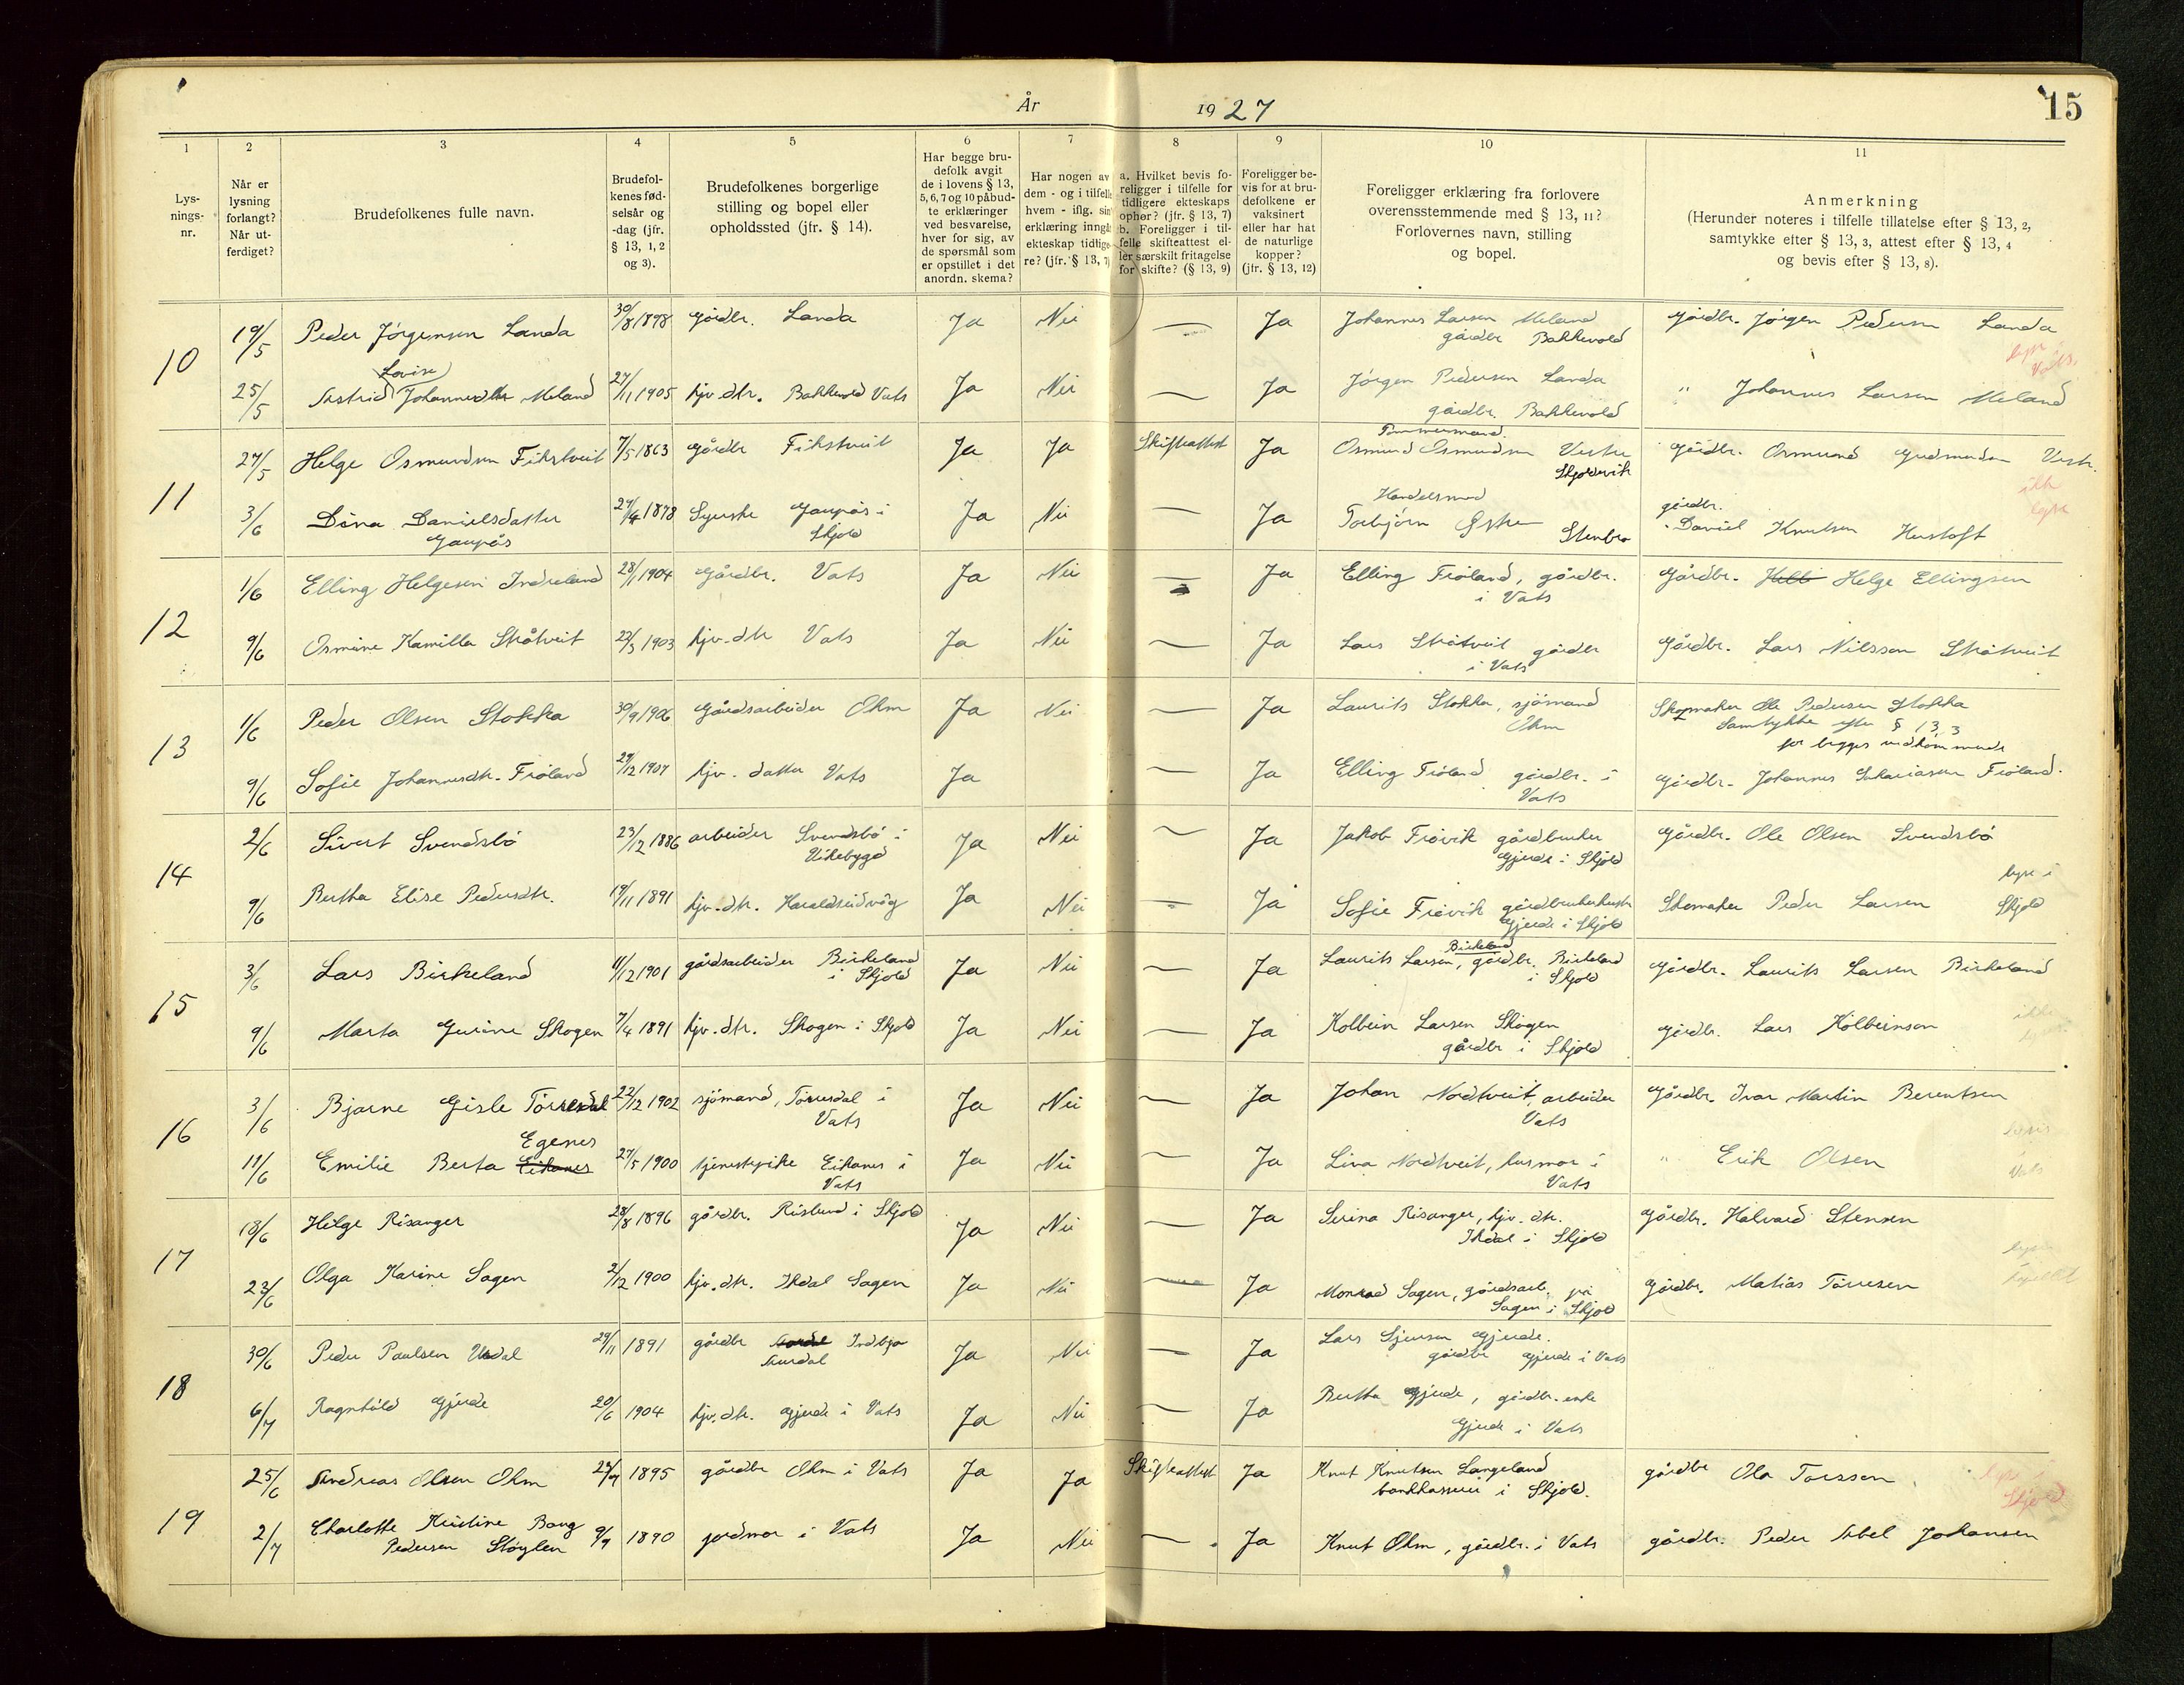 År 1927
15
1 2 3 4 5 6 7 8 9 10 11
Lys-
nings-
nr.
Når er
lysning
forlangt?
Når ut-
ferdiget?
Brudefolkenes fulle navn.
Brudefol-
kenes fød-
selsår og
-dag (jfr.
§ 13, 1, 2
og 3).
Brudefolkenes borgerlige
stilling og bopel eller
opholdssted (jfr. § 14).
Har begge bru-
defolk avgit
de i lovens § 13,
5, 6, 7 og 10 påbud-
te erklæringer
ved besvarelse,
hver for sig, av
de spørsmål som
er opstillet i det
anordn. skema?
Har nogen av
dem - og i tilfelle
hvem - iflg. sin
erklæring inngå
ekteskap tidlige-
re? (jfr. § 13, 7)
a. Hvilket bevis fo-
religger i tilfelle for
tidligere ekteskaps
ophør? (jfr. § 13, 7)
b. Foreligger i til-
felle skifteattest el-
ler særskilt fritagelse
for skifte? (§ 13, 9)
Foreligger be-
vis for at bru-
defolkene er
vaksinert
eller har hat
de naturlige
kopper?
(jfr. § 13, 12)
Foreligger erklæring fra forlovere
overensstemmende med § 13, 11?
Forlovernes navn, stilling
og bopel.
Anmerkning
(Herunder noteres i tilfelle tillatelse efter § 13, 2,
samtykke efter § 13, 3, attest efter § 13, 4
og bevis efter § 13, 8).
10
19/5 Peder Jørgensen Landa 30/8 1898 Gårdbr. Landa Ja Nei — Ja Johannes Larsen Meland
gårdbr Bakkevold
Gårdbr. Jørgen Pedersen Landa
25/5 Astrid Lovise Johannesdtr Meland 27/11 1905 hjv. dtr. Bakkevold Vats Ja Nei — Ja Jørgen Pedersen Landa
gårdbr. Bakkevold
" Johannes Larsen Meland
11
27/5 Helge Osmundsen Fikstveit 7/5 1863 Gårdbr Fikstveit Ja Ja Skifteattest Ja Tømmermand
Osmund Osmundsen Vestre
Skjoldevik
Gårdbr. Osmund Gudmundsen Vestr.
ikke
lyse
3/6 Dina Danielsdatter
Gaupås
27/4 1878 Syerske Gaupås i
Skjold
Ja Nei — Ja Handelsmand
Torbjørn Østre Stenbro
gårdbr.
Daniel Knutsen Hustoft
12
1/6 Elling Helgesen Indreland 28/1 1904 Gårdbr. Vats Ja Nei — Ja Elling Frøland, gårdbr.
i Vats
Gårdbr. Helge Ellingsen
9/6 Osmine Kamilla Skåtveit 22/3 1903 hjv. dtr Vats Ja Nei — Ja Lars Skåtveit gårdbr
i Vats
Gårdbr. Lars Nilsson Skåtveit
13
1/6 Peder Olsen Stokka 30/9 1906 Gårdsarbeider Ohm Ja Nei — Ja Laurits Stokka, sjömand
Ohm
Skomaker Ole Pedersen Stokka
Samtykke efter § 13, 3
for begges vedkommende
9/6 Sofie Johannesdtr. Frøland 29/12 1907 hjv. datter Vats Ja — Ja Elling Frøland gårdbr. i
Vats
Gårdbr. Johannes Sakariasen Frøland.
14
2/6 Sivert Svendsbö 23/12 1886 arbeider Svendsbö i
Vikebygd
Ja Nei — Ja Jakob Frövik gårdbruker
Gjerde i Skjold
Gårdbr. Ole Olsen Svendsbö
9/6 Bertha Elise Pedersdtr. 19/11 1891 hjv. dtr. Haraldseidvåg Ja Nei — Ja Sofie Frövik gårdbrukerhustr
Gjerde i Skjold
Skomaker Peder Larsen
lyse i
Skjold
15
3/6 Lars Birkeland 11/12 1901 gårdsarbeider Birkeland
i Skjold
Ja Nei — Ja Birkeland
Laurits Larsen, gårdbr. Birkeland
i Skjold
Gårdbr. Laurits Larsen Birkeland
9/6 Marta Gurine Skogen 7/4 1891 hjv. dtr. Skogen i Skjold Ja Nei — Ja Kolbein Larsen Skogen
gårdbr i Skjold
Gårdbr. Lars Kolbeinson
16
3/6 Bjarne Gisle Törresdal 22/12 1902 sjömand, Törresdal i
Vats
Ja Nei — Ja Johan Nordtveit, arbeider
Vats
Gårdbr. Ivar Martin Berentsen
11/6 Emilie Berta Eikanes
Egenes
27/5 1900 tjenestepike Eikanes i
Vats
Ja Nei — Ja Lina Nordtveit, husmor i
Vats
" Erik Olsen
Vats
17
18/6 Helge Risanger 28/8 1896 gårdbr. Rislund i Skjold Ja Nei — Ja Serina Risanger, hjv. dtr.
Ikdal i Skjold
Gårdbr. Halvard Stensen
23/6 Olga Karine Sagen 2/12 1900 hjv. dtr. Ikdal Sagen Ja Nei — Ja Monrad Sagen, gårdsarb. på
Sagen i Skjold
Gårdbr. Matias Törresen
18
30/6 Peder Paulsen 29/11 1891 gårdbr Indbjo
Aurdal
Ja Nei — Ja Lars Sjursen Gjerde.
gårdbr Gjerde i Vats
6/7 Ragnhild Gjerde 20/6 1904 hjv. dtr. Gjerde i Vats Ja Nei — Ja Bertha Gjerde, gårdbr. enke
Gjerde i Vats
19
25/6 Andreas Olsen Ohm 1895 gårdbr Ohm i Vats Ja Ja Skifteattest Ja Knut Knutsen Langeland
bankkasserer i Skjold.
gårdbr Ola Torsson
Skjold
2/7 Charlotte Kristine Bang
Pedersen Støylen
9/9 1890 jordmor i Vats Ja Nei — Ja Knut Ohm, gårdbr. i Vats
gårdbr. Peder Abel Johansen